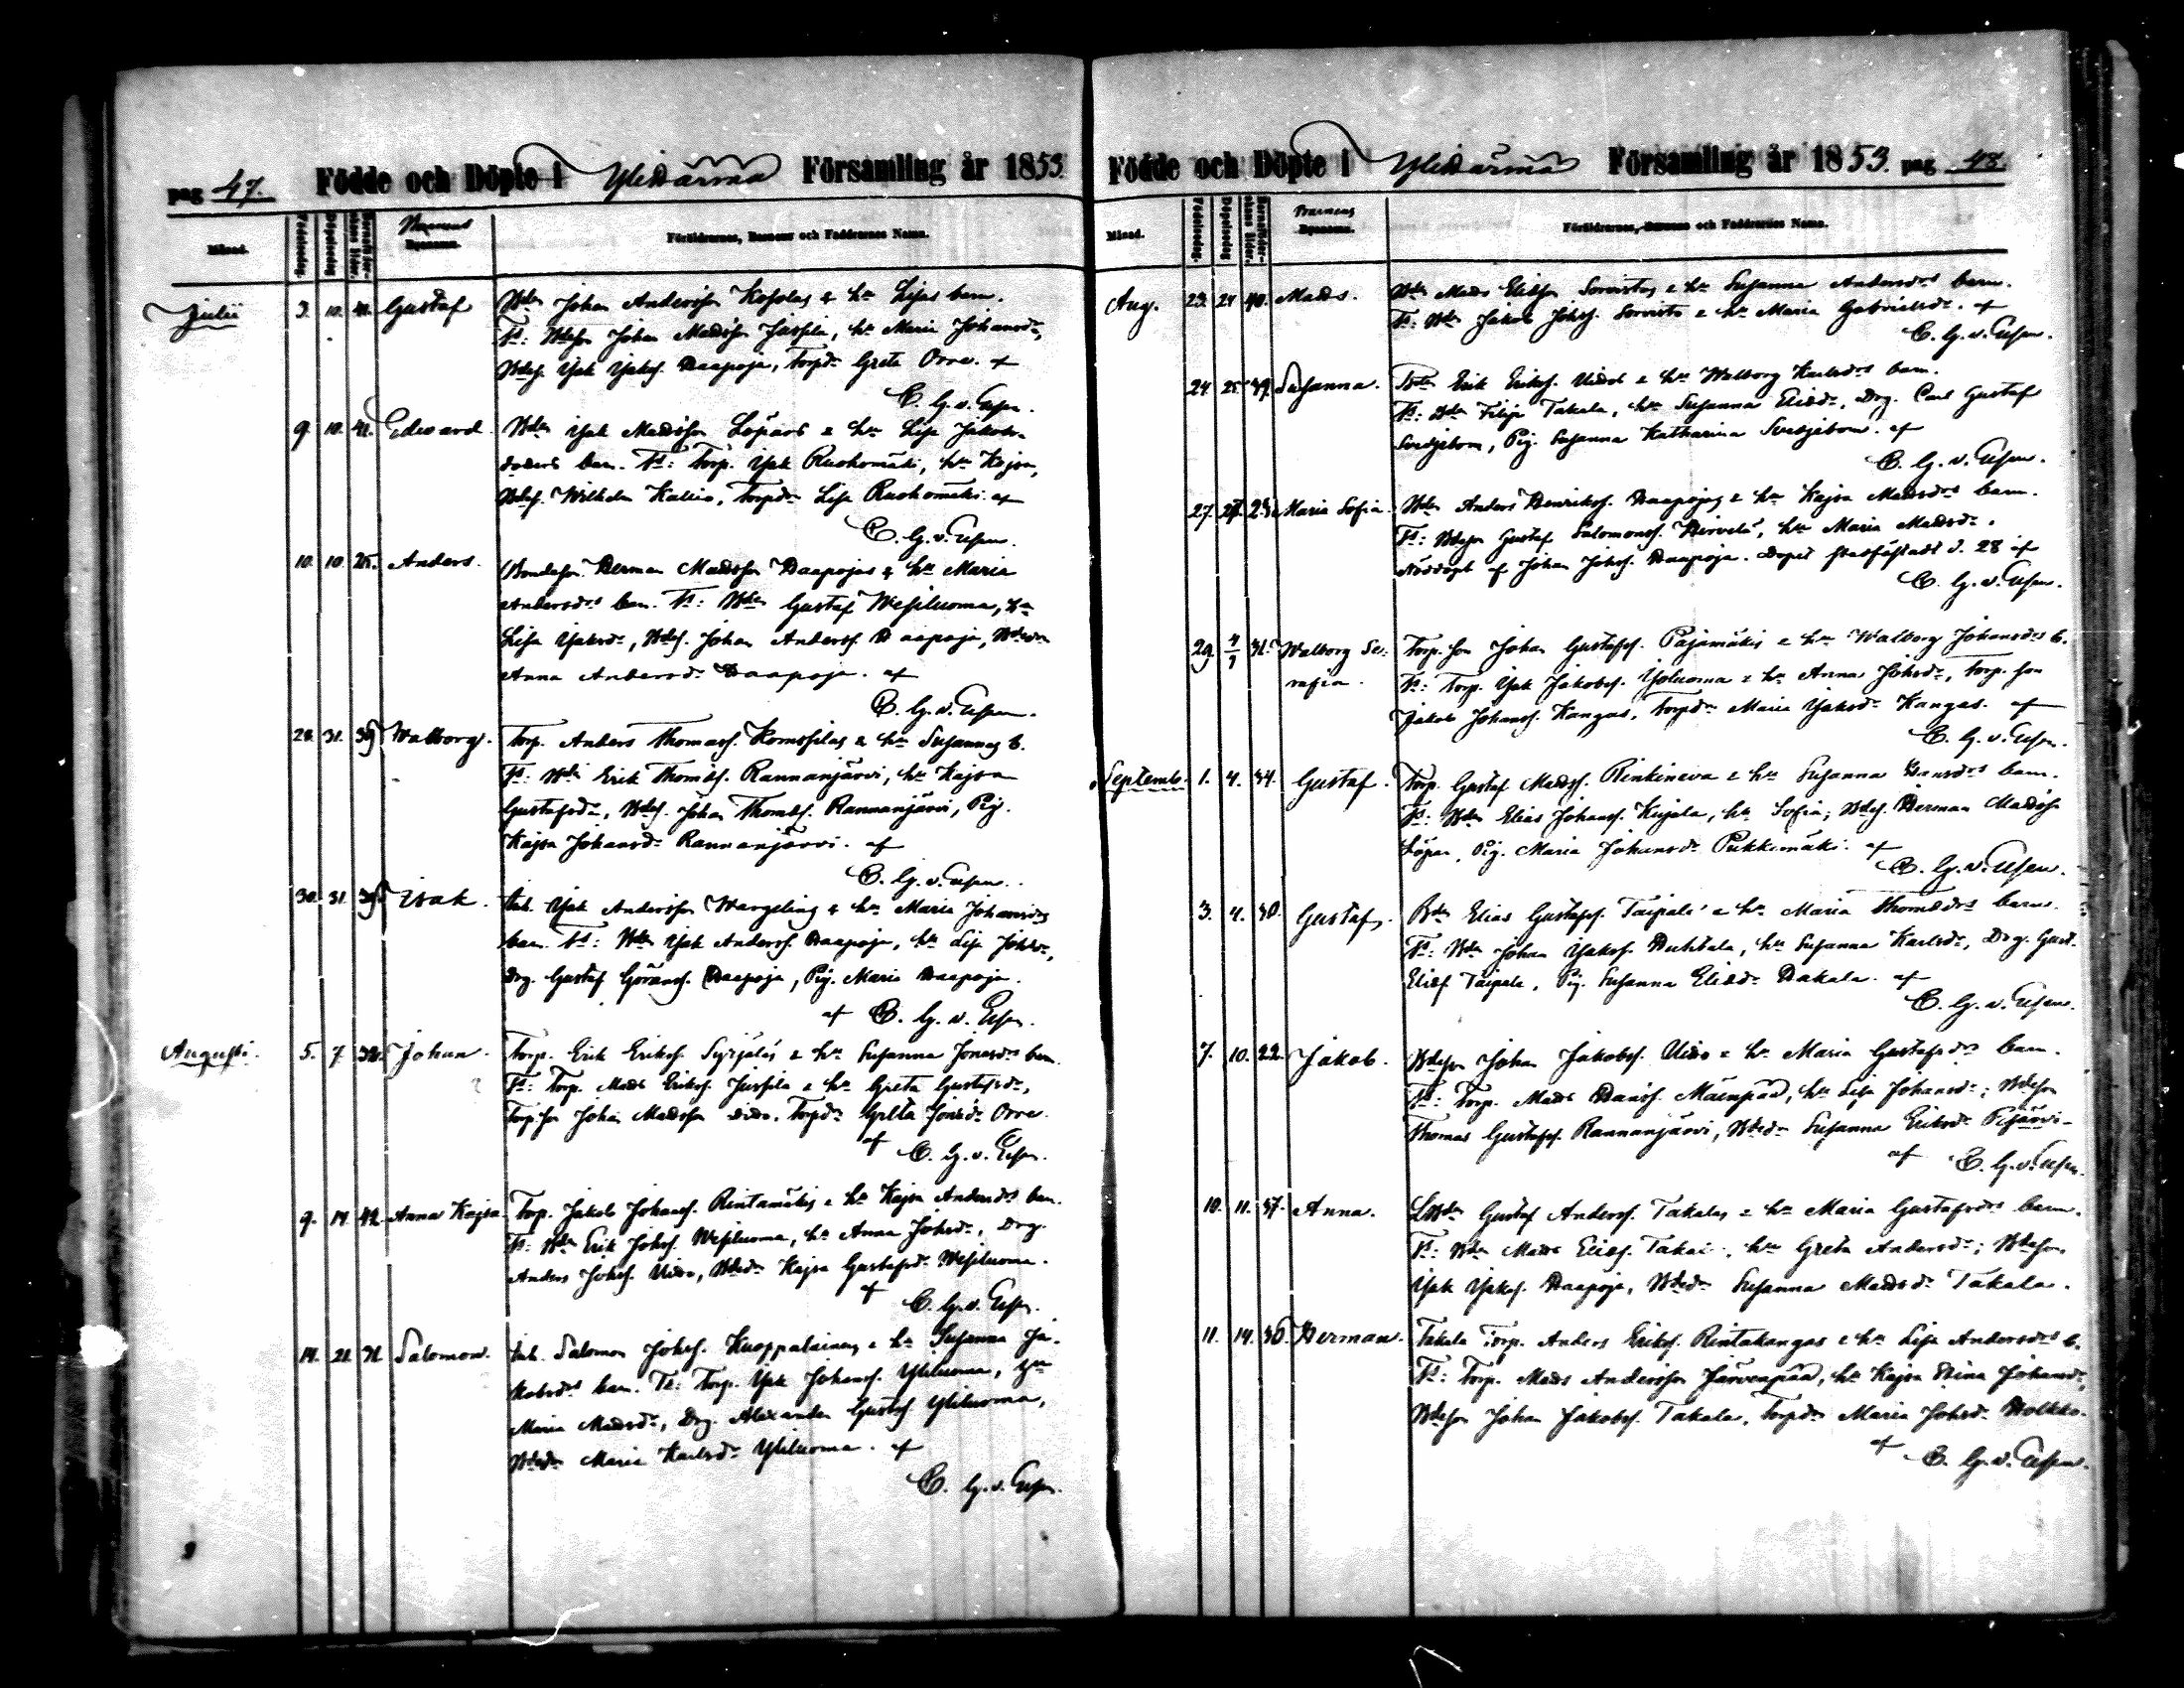 pag 47. Födde och Döpte i Ylihärmä Församling år 1853.
Månad. Födelsedag. Döpelsedag Barnens Föräldrarnes, Barnens och Faddrarnes Namn.
Julii 3. 10. 41. Gustaf Bdn Johan Andersson Kosolas & hu Lisas barn.
Fd: Bdeson Johan Madsson Jussila, hu Maria Johansdr,
Bdes. Isak Isaks. Haapoja, Torpdr Greta Orre. af
C. G. v. Essen.
9 10. 41. Edward Bdn Isak Madsson Löpars & hu Lisa Jakobs-
doters barn. Fd: Torp. Isak Ruohomäki, hu Kajsa,
Bdes. Wilhelm Kallio, Torpdr Lisa Ruohomäki. af
C. G. v. Essen.
10. 10. 25. Anders. Bondeson Herman Madsson Haapojas & hu Maria
Andersdrs barn. Fd: Bdn Gustaf Wesiluoma, hu
Lisa Isaksdr, Bdes. Johan Anderss. Haapoja, Bdedr
Anna Andersdr Haapoja. af
C. G. v. Essen.
28. 31. 39 Walborg. Torp. Anders Thomass. Komsilas & hu Susannas b.
Fd: Bdn Erik Thomass. Rannanjärvi, hu Kajsa
Gustafsdr, Bdes. Johan Thomass. Rannanjärvi, Pig.
Kajsa Johansdr Rannanjärvi. af
C. G. v. Essen.
30. 31. 39. Isak. Inh. Isak Andersson Wargelins & hu Maria Johansdrs
barn. Fd: Bdn Isak Anderss. Haapoja, hu Lisa Johsdr,
Drg. Gustaf Görans. Haapoja, Pig. Maria Haapoja.
af C. G. v. Essen.
Augusti. 5. 7. 32. Johan. Torp. Erik Eriks. Syrjälás & hu Susanna Jonasdrs barn.
Fd: Torp. Mads Eriks. Jussila & hu Greta Gustafsdr,
Torp.son Johan Madsson dido, Torpdr Greta Jonsdr Orre.
af C. G. v. Essen.
9. 14. 42. Anna Kajsa Torp. Jakob Johans. Rintamäkis & hu Kajsa Andersdrs barn.
Fd: Bdn Erik Johs. Wesiluoma, hu Anna Johsdr, Drg.
Anders Johs. Uido, Bdedr Kajsa Gustafsdr Wesiluoma.
af C. G. v. Essen.
14. 21. 31. Salomon. Inh. Salomon Johs. Knoppalainens & hu Susanna Ja-
kobsdrs barn. Fd: Torp. Isak Johans. Yliluoma, hu
Maria Madsdr, Drg. Alexander Gustafs Yliluoma,
Bdedr Maria Karlsdr Yliluoma. af
C. G. v. Essen.
Födde och Döpte i Ylihärmä Församling år 1853. pag 48.
Månad. Födelsedag. Döpelsedag Barnens Föräldrarnes, Barnens och Faddrarnes Namn.
Aug. 23. 24 40. Mads. Bdn Mads Eliasson Sorvistos & hu Susanna Andersdrs barn.
Fd: Bdn Jakob Johs. Sorvisto & hu Maria Gabrielsdr. af
C. G. v. Essen.
24 25 39. Susanna. Bdn Erik Eriks. Uidos & hu Walborg Karlsdrs barn.
Fd: Bdn Filip Takala, hu Susanna Eliedr, Drg. Carl Gustaf
Svedjebom, Pig. Susanna Katharina Svedjebom. af
C. G. v. Essen.
27. 27. 23. Maria Sofia. Bdn Anders Henrikss. Haapojas & hu Kajsa Madsdrs barn.
Fd: Bdeson Gustaf Salomonss. Hervelä, hu Maria Madsdr.
Nöddöpt af Johan Johs. Haapoja. Dopet stadfästadt d. 28 af
C. G. v. Essen.
29. 4/9 31. Walborg Se- Torp.son Johan Gustafss. Pajamäkis & hu Walborg Johansdrs b.
rafia. Fd: Torp. Isak Jakobs. Isoluoma & hu Anna Johsdr, Torp.son
Jakob Johans. Kangas, Torpdr Maria Isaksdr Kangas. af
C. G. v. Essen.
Septemb. 1. 4. 34. Gustaf. Torp. Gustaf Madss. Rinkineva & hu Susanna Hansdrs barn.
Fd: Bdn Elias Johans. Kujala, hu Sofia; Bdes. Herman Madsson
Löpar, Pig. Maria Johansdr Pukkimäki. af
C. G. v. Essen.
3. 4. 30. Gustaf. Bdn Elias Gustafss. Taipale & hu Maria Thomasdrs barn.
Fd: Bdn Johan Isaks. Huhtala, hu Susanna Karlsdr, Drg. Gust.
Elias Taipale, Pig. Susanna Eliedr Hakala. af
C. G. v. Essen.
7. 10. 22. Jakob. Bdeson Johan Jakobs. Uido & hu Maria Gustafsdrs barn.
Fd: Torp. Mads Hanss. Mäenpää, hu Lisa Johansdr; Bdeson
Thomas Gustafss. Rannanjärvi, Bdedr Susanna Eriksdr Pesjärvi-
af C. G. v. Essen.
10. 11. 37. Anna. LBdn Gustaf Anderss. Takalas & hu Maria Gustafsdrs barn.
Fd: Bdn Mads Elias. Takai, hu Greta Andersdr; Bdeson
Isak Isaks. Haapoja, Bdedr Susanna Madsdr Takala.
11. 14. 36. Herman. Takala Torp. Anders Eriks. Rintakangas & hu Lisa Andersdrs b.
Fd: Torp. Mads Andersson Järvenpää, hu Kajsa Stina Johansdr,
Bdeson Johan Jakobs. Takala, Torpdr Maria Johsdr Holkko.
af C. G. v. Essen.